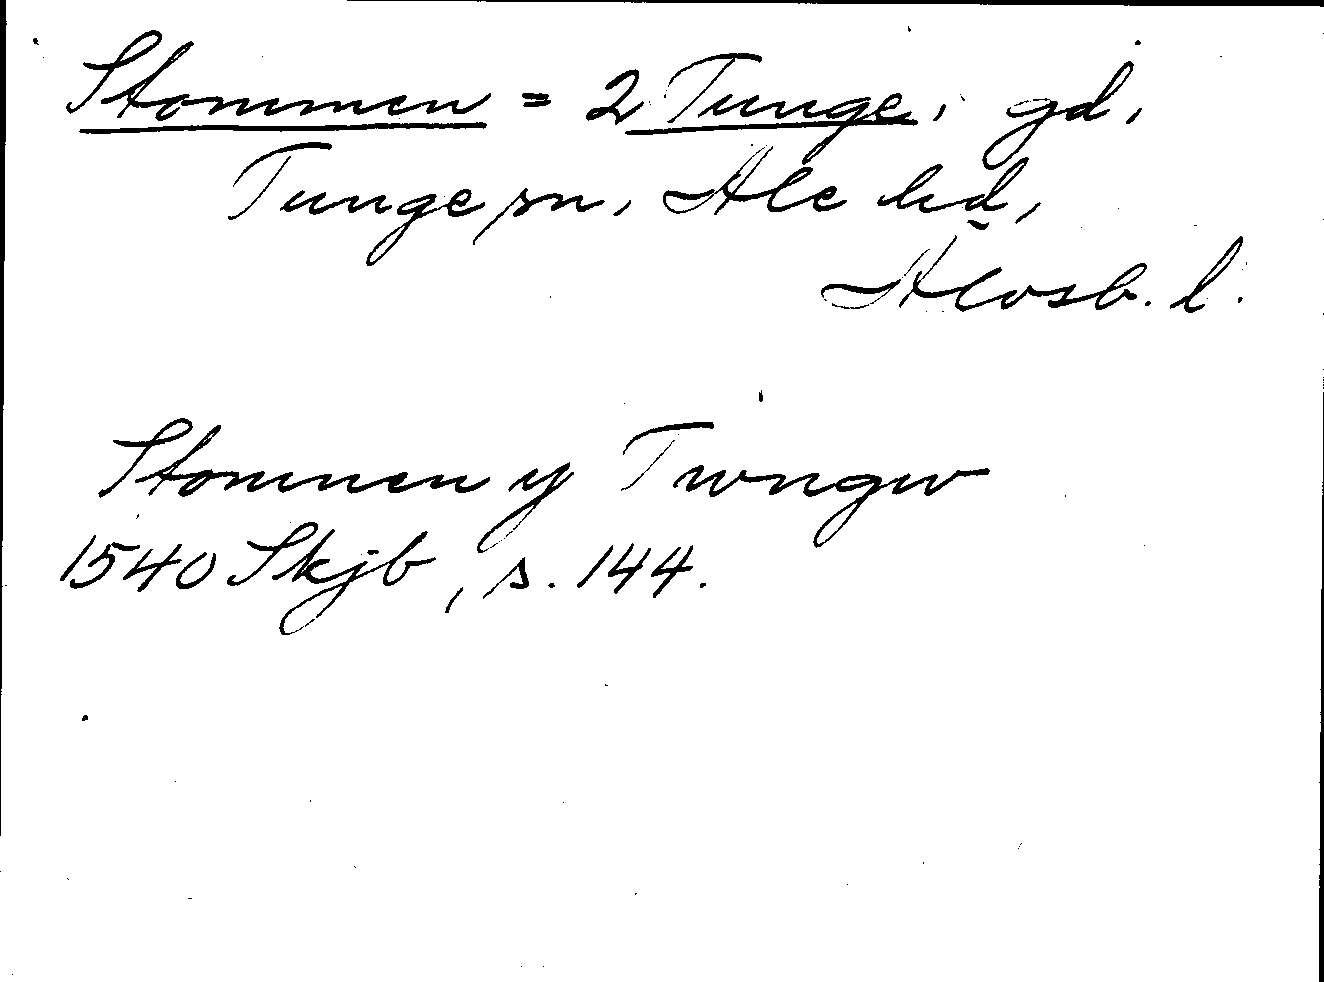 Stommen = 2 Tunge, gd,
Tunge sn, Ale hd,
Älvsb. l.
Stommen y Twngw
1540 Skjb, s. 144.